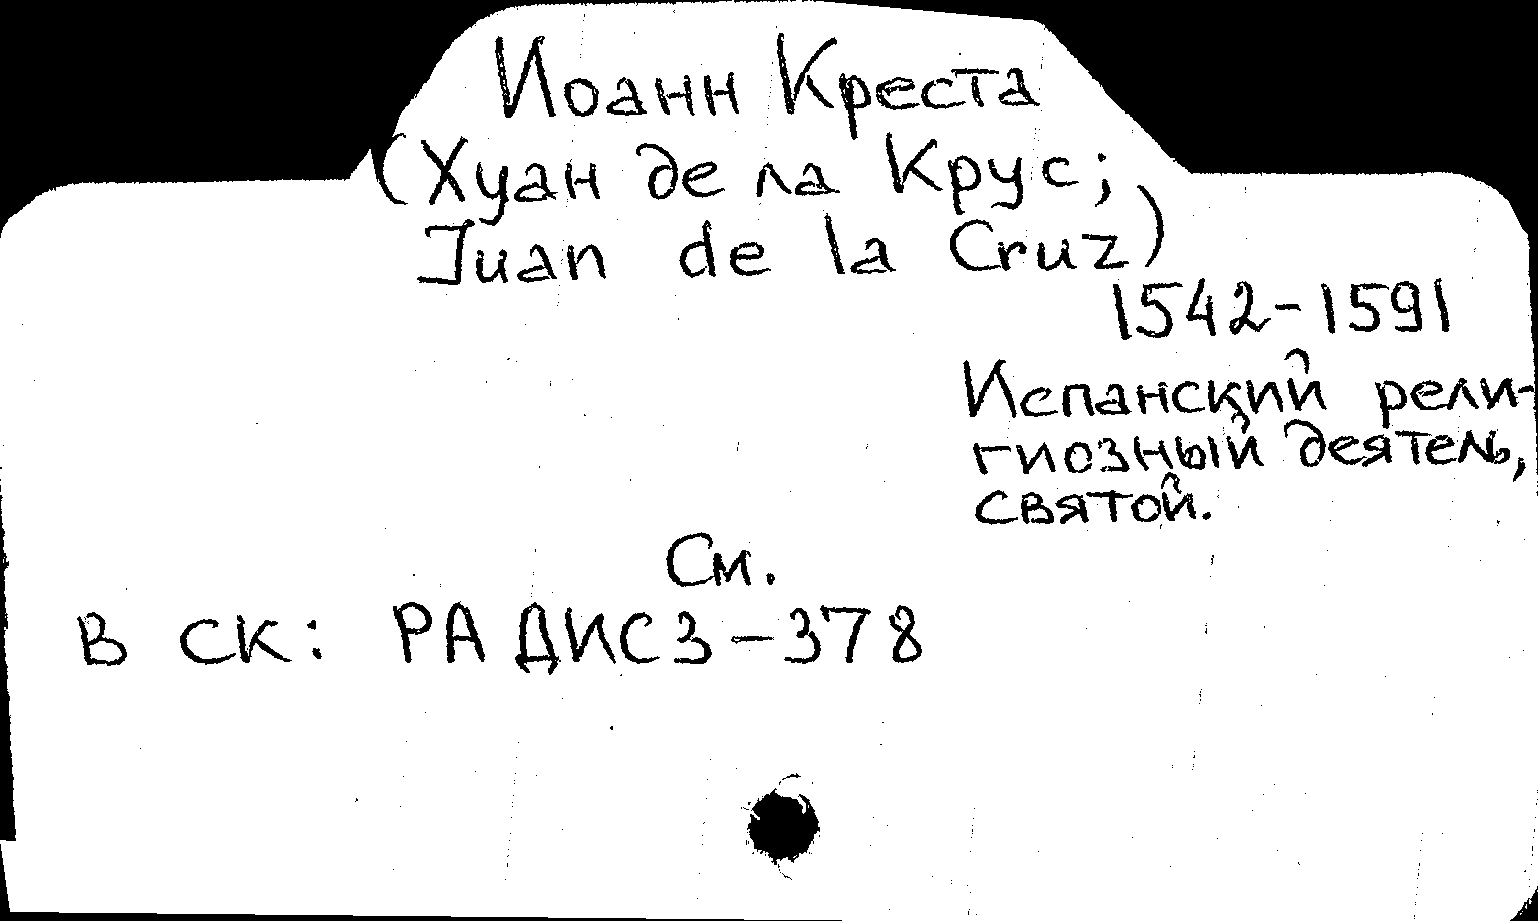 Иоанн Креста
(Хуан де ла Крус;
Juan de la Cruz)
1542-1591
Испанский рели-
гиозный деятель,
святой.
См.
В СК: РА ДИС3-378